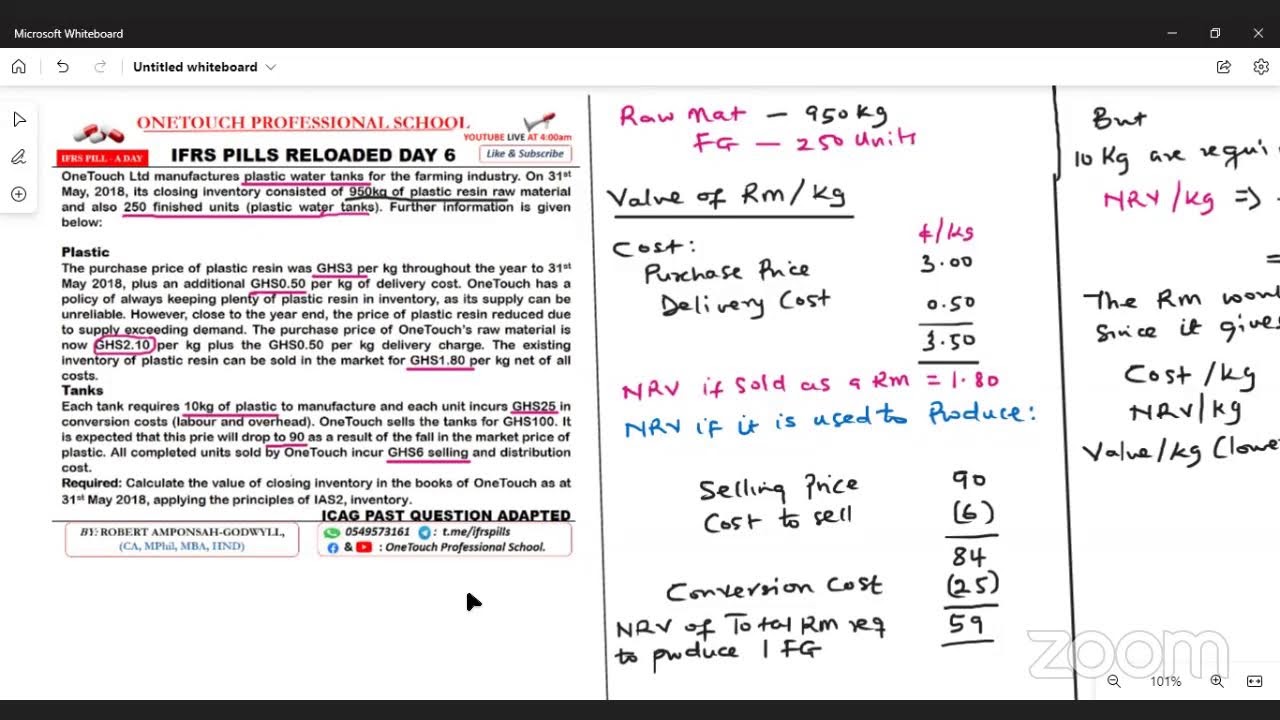 Microsoft Whiteboard
Untitled whiteboard
ONETOUCH PROFESSIONAL SCHOOL
YOUTUBE LIVE AT 4:00am
IFRS PILL - A DAY
IFRS PILLS RELOADED DAY 6
Like & Subscribe
OneTouch Ltd manufactures plastic water tanks for the farming industry. On 31st
May, 2018, its closing inventory consisted of 950kg of plastic resin raw material
and also 250 finished units (plastic water tanks). Further information is given
below:
Plastic
The purchase price of plastic resin was GHS3 per kg throughout the year to 31st
May 2018, plus an additional GHS0.50 per kg of delivery cost. OneTouch has a
policy of always keeping plenty of plastic resin in inventory, as its supply can be
unreliable. However, close to the year end, the price of plastic resin reduced due
to supply exceeding demand. The purchase price of OneTouch's raw material is
now GHS2.10 per kg plus the GHS0.50 per kg delivery charge. The existing
inventory of plastic resin can be sold in the market for GHS1.80 per kg net of all
costs.
Tanks
Each tank requires 10kg of plastic to manufacture and each unit incurs GHS25 in
conversion costs (labour and overhead). OneTouch sells the tanks for GHS100. It
is expected that this prie will drop to 90 as a result of the fall in the market price of
plastic. All completed units sold by OneTouch incur GHS6 selling and distribution
cost.
Required: Calculate the value of closing inventory in the books of OneTouch as at
31st May 2018, applying the principles of IAS2, inventory.
ICAG PAST QUESTION ADAPTED
BY: ROBERT AMPONSAH-GODWYLL,
(CA, MPhil, MBA, HND)
0549573161 : t.me/ifrspills
& : OneTouch Professional School.
Raw Mat – 950kg
FG – 250 Units
Value of Rm/kg
Cost: ¢/kg
Purchase Price 3.00
Delivery Cost 0.50
3.50
NRV if Sold as a Rm = 1.80
NRV if it is used to Produce:
Selling Price 90
Cost to sell (6)
84
Conversion Cost (25)
NRV of Total Rm req 59
to produce 1 FG
But
10 Kg are requi
NRV/kg =>
=
The Rm woul
Since it gives
Cost/kg
NRV/kg
Value/kg (lowe
zoom
101%